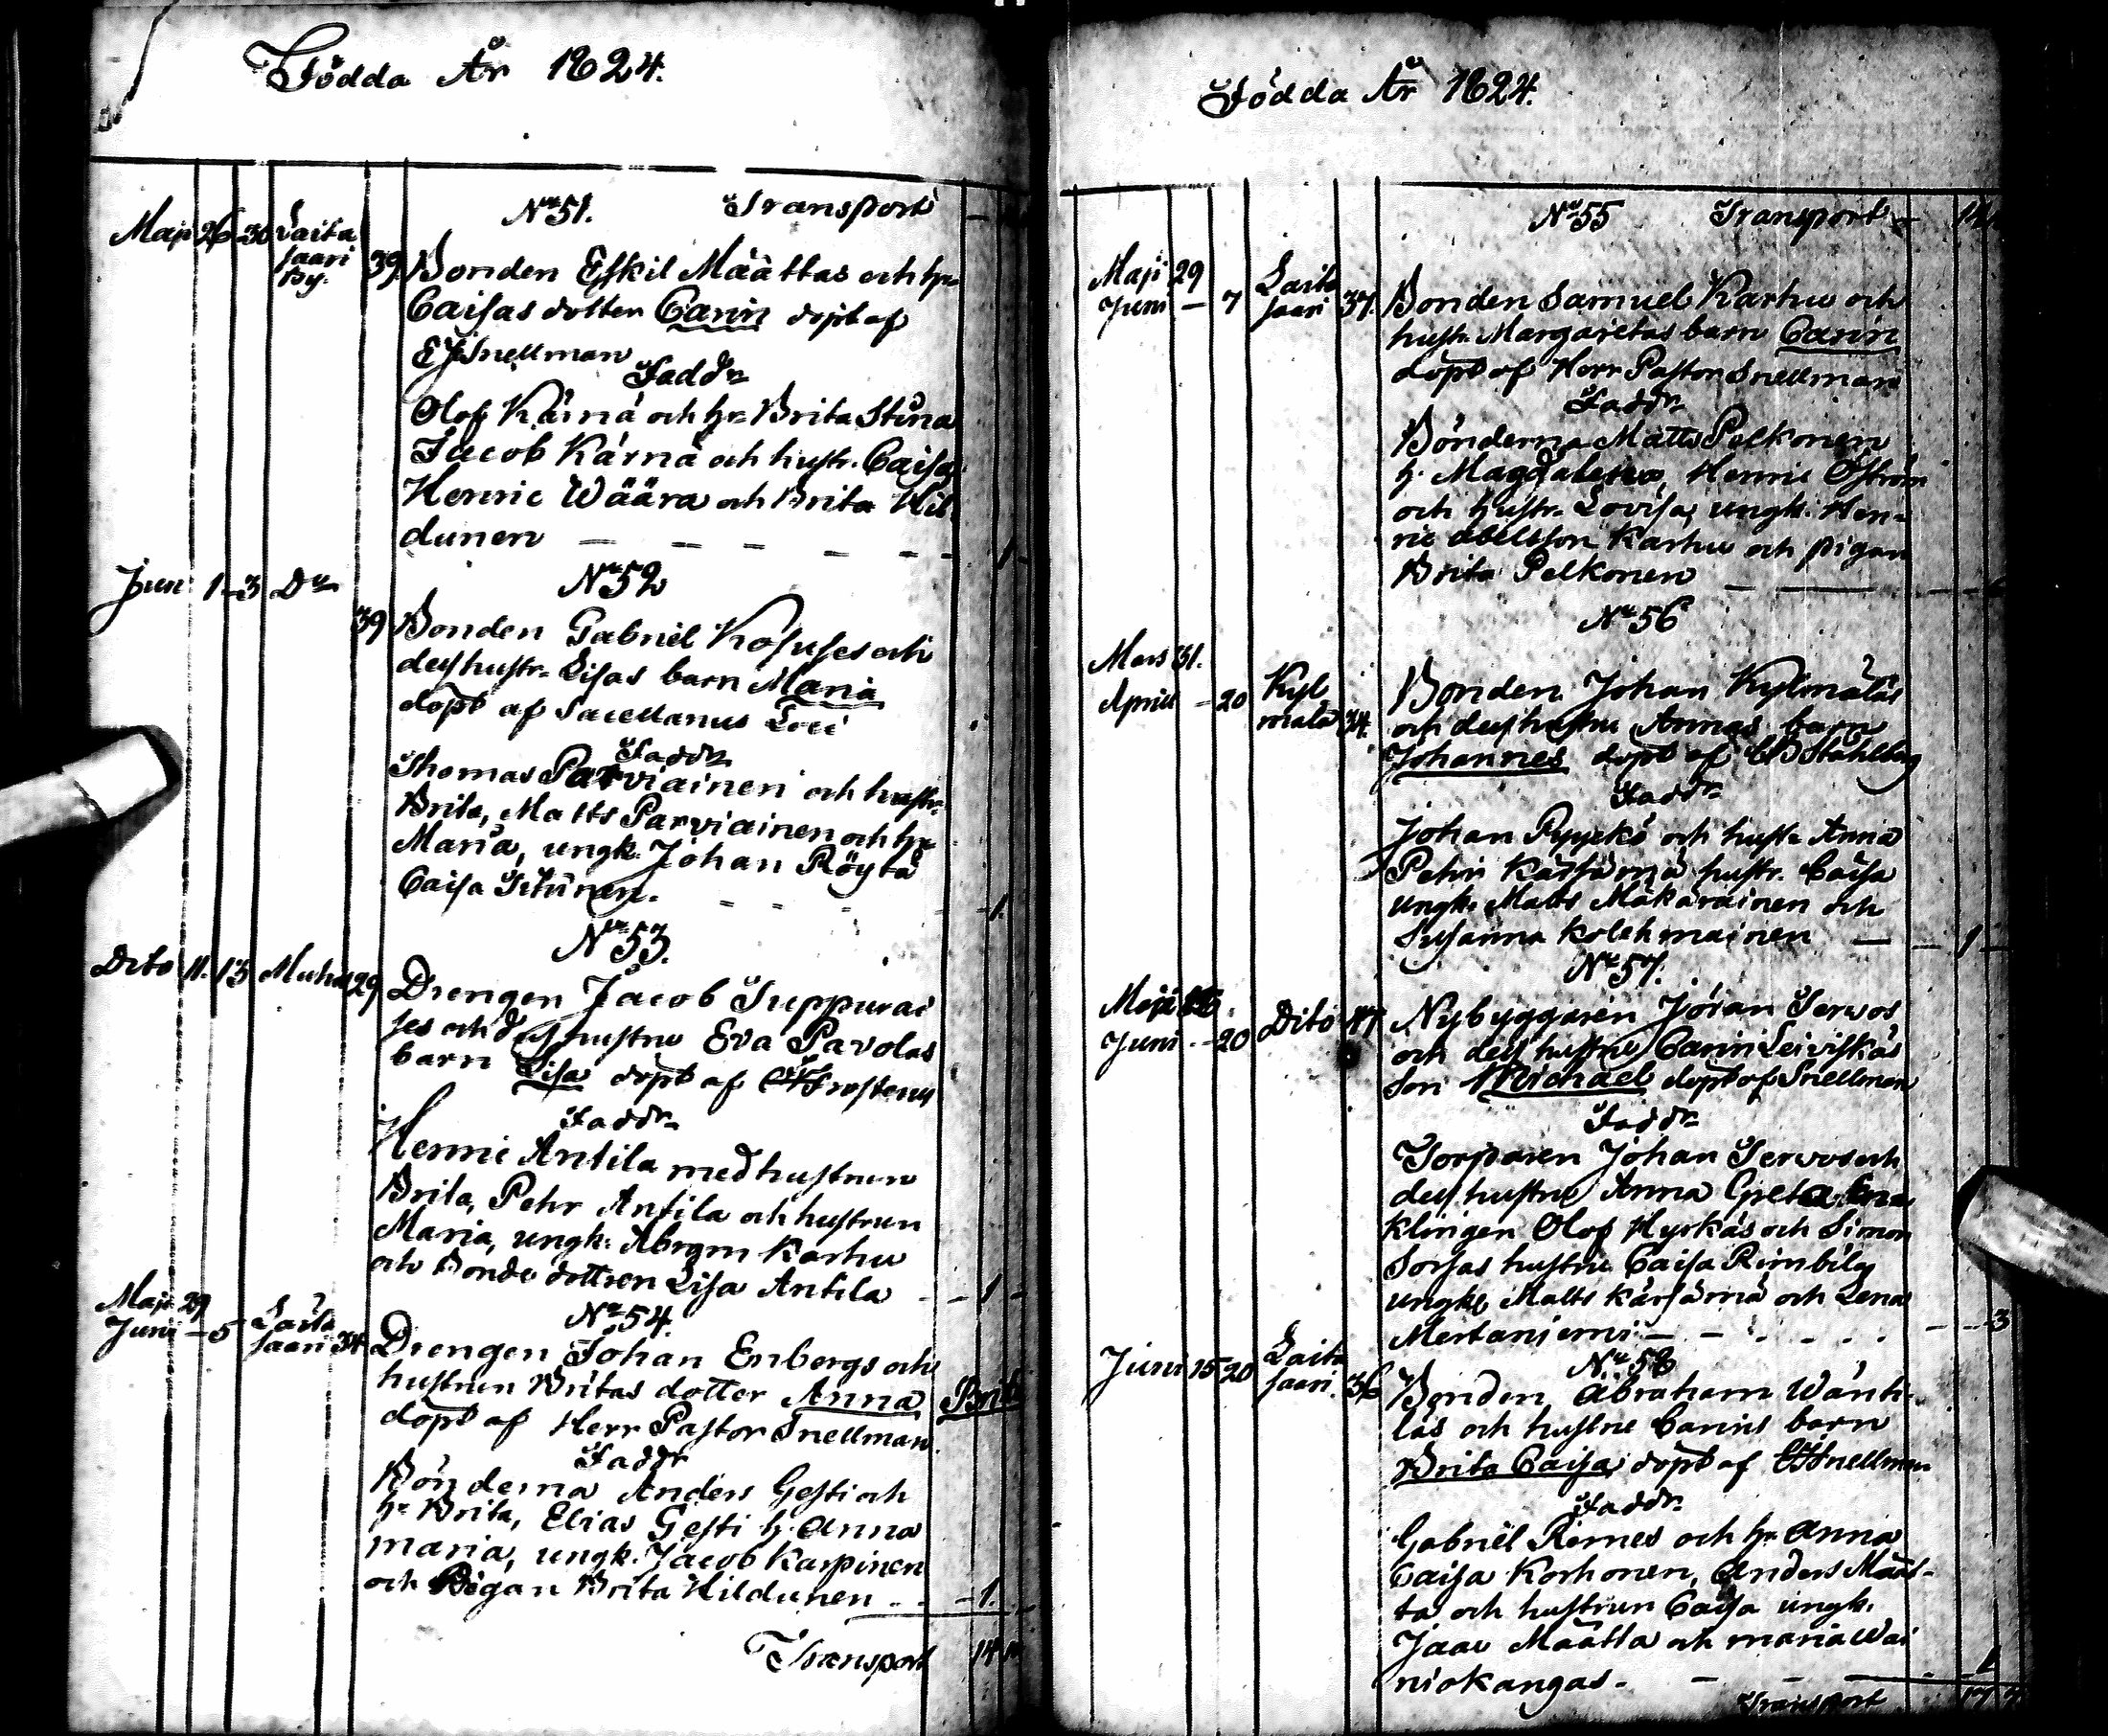 Födda År 1824.
No 51. Transport
Maji 26 30 Laita
saari
By.
39 Bonden Eskil Määttas och hr
Caisas dotter Carin döpt af
EJSnellman
Faddr
Olof Kärnä och hr Brita Stina
Jacob Kärnä och hustr. Caisa,
Henric Wäära och Brita Hil
dunen 1
No 52
Juni 1 3 Do
39 Bonden Gabriel
dess hustr. Lisas barn Maria
döpt af Sacellanus Loci
Faddr
Thomas Parviainen och hustr.
Brita, Matts Parviainen och hr
Maria, ungk. Johan Röytä
Caisa 1.
No 53.
Dito 11. 13 Muhos 29 Drengen Jacob Suppurai
ses och dess hustru Eva Pavolas
barn Lisa döpt af Frosterus
Faddr
Henric Antila med hustrun
Brita, Pehr Antila och hustrun
Maria, ungk. Abrgm Karhu
och Bonde dottren Lisa Antila 1
No 54
Maji 29
Juni 5 Laita
saari 34 Drengen Johan Enbergs och
hustrun Britas dotter Anna Brita
döpt af Herr Pastor Snellman.
Faddr
Bönderna Anders Gesti och
hr Brita, Elias Gesti h. Anna
maria, ungk. Jacob Karpinen
och Pigan Brita Hildunen 1.
Transport 14
Födda År 1824.
No 55 Transport
Maji 29
Juni 7 Laita
saari 37. Bonden Samuel Karhu och
hustr. Margaretas barn Carin
döpt af Herr Pastor Snellman
Faddr
Bönderna Matts Pelkonen
h. Magdalena, Henric Öström
och hustr. Lovisa, ungk. Hen-
ric Abelsson Karhu och pigan
Brita Pelkonen
No 56
Mars 31.
Aprill 20 Kyl
mälä 34. Bonden Johan Kylmäläs
och dess hustru Annas barn
Johannes döpt af CB Ståhlberg
Faddr
Johan Pyyckö och hustr Anna
Pehr Kärsämä hustr. Caisa
ungk. Matts Mäkäräinen och
Susanna Kolehmainen 1
No 57.
Maji
Juni 20 Dito Nybyggaren Jöran Servos
och dess hustru Carin Leiviskäs
son Michael döpt af Snellman
Faddr
Torparen Johan Servos och
dess hustru Anna Greta Ena
klingen Olof Hyrkäs och Simon
Sorsas hustru Caisa Rimbilä
ungk. Matts Kärsämä och Lena
Mertaniemi 3
No 58
Juni 15 20 Laita
saari. 36 Bonden Abraham Wänti-
läs och hustru Carins barn
Brita Caisa, döpt af EJSnellman
Faddr.
Gabriel Riemes och hr Anna
Caisa Korhonen, Anders Määt-
ta och hustrun Caisa ungk.
Isaac Määtta och maria Wai
niokangas. 1
Transport 17